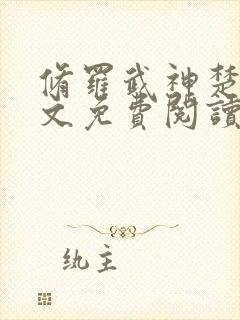 脩羅武神楚
文免費閱讀
紈主